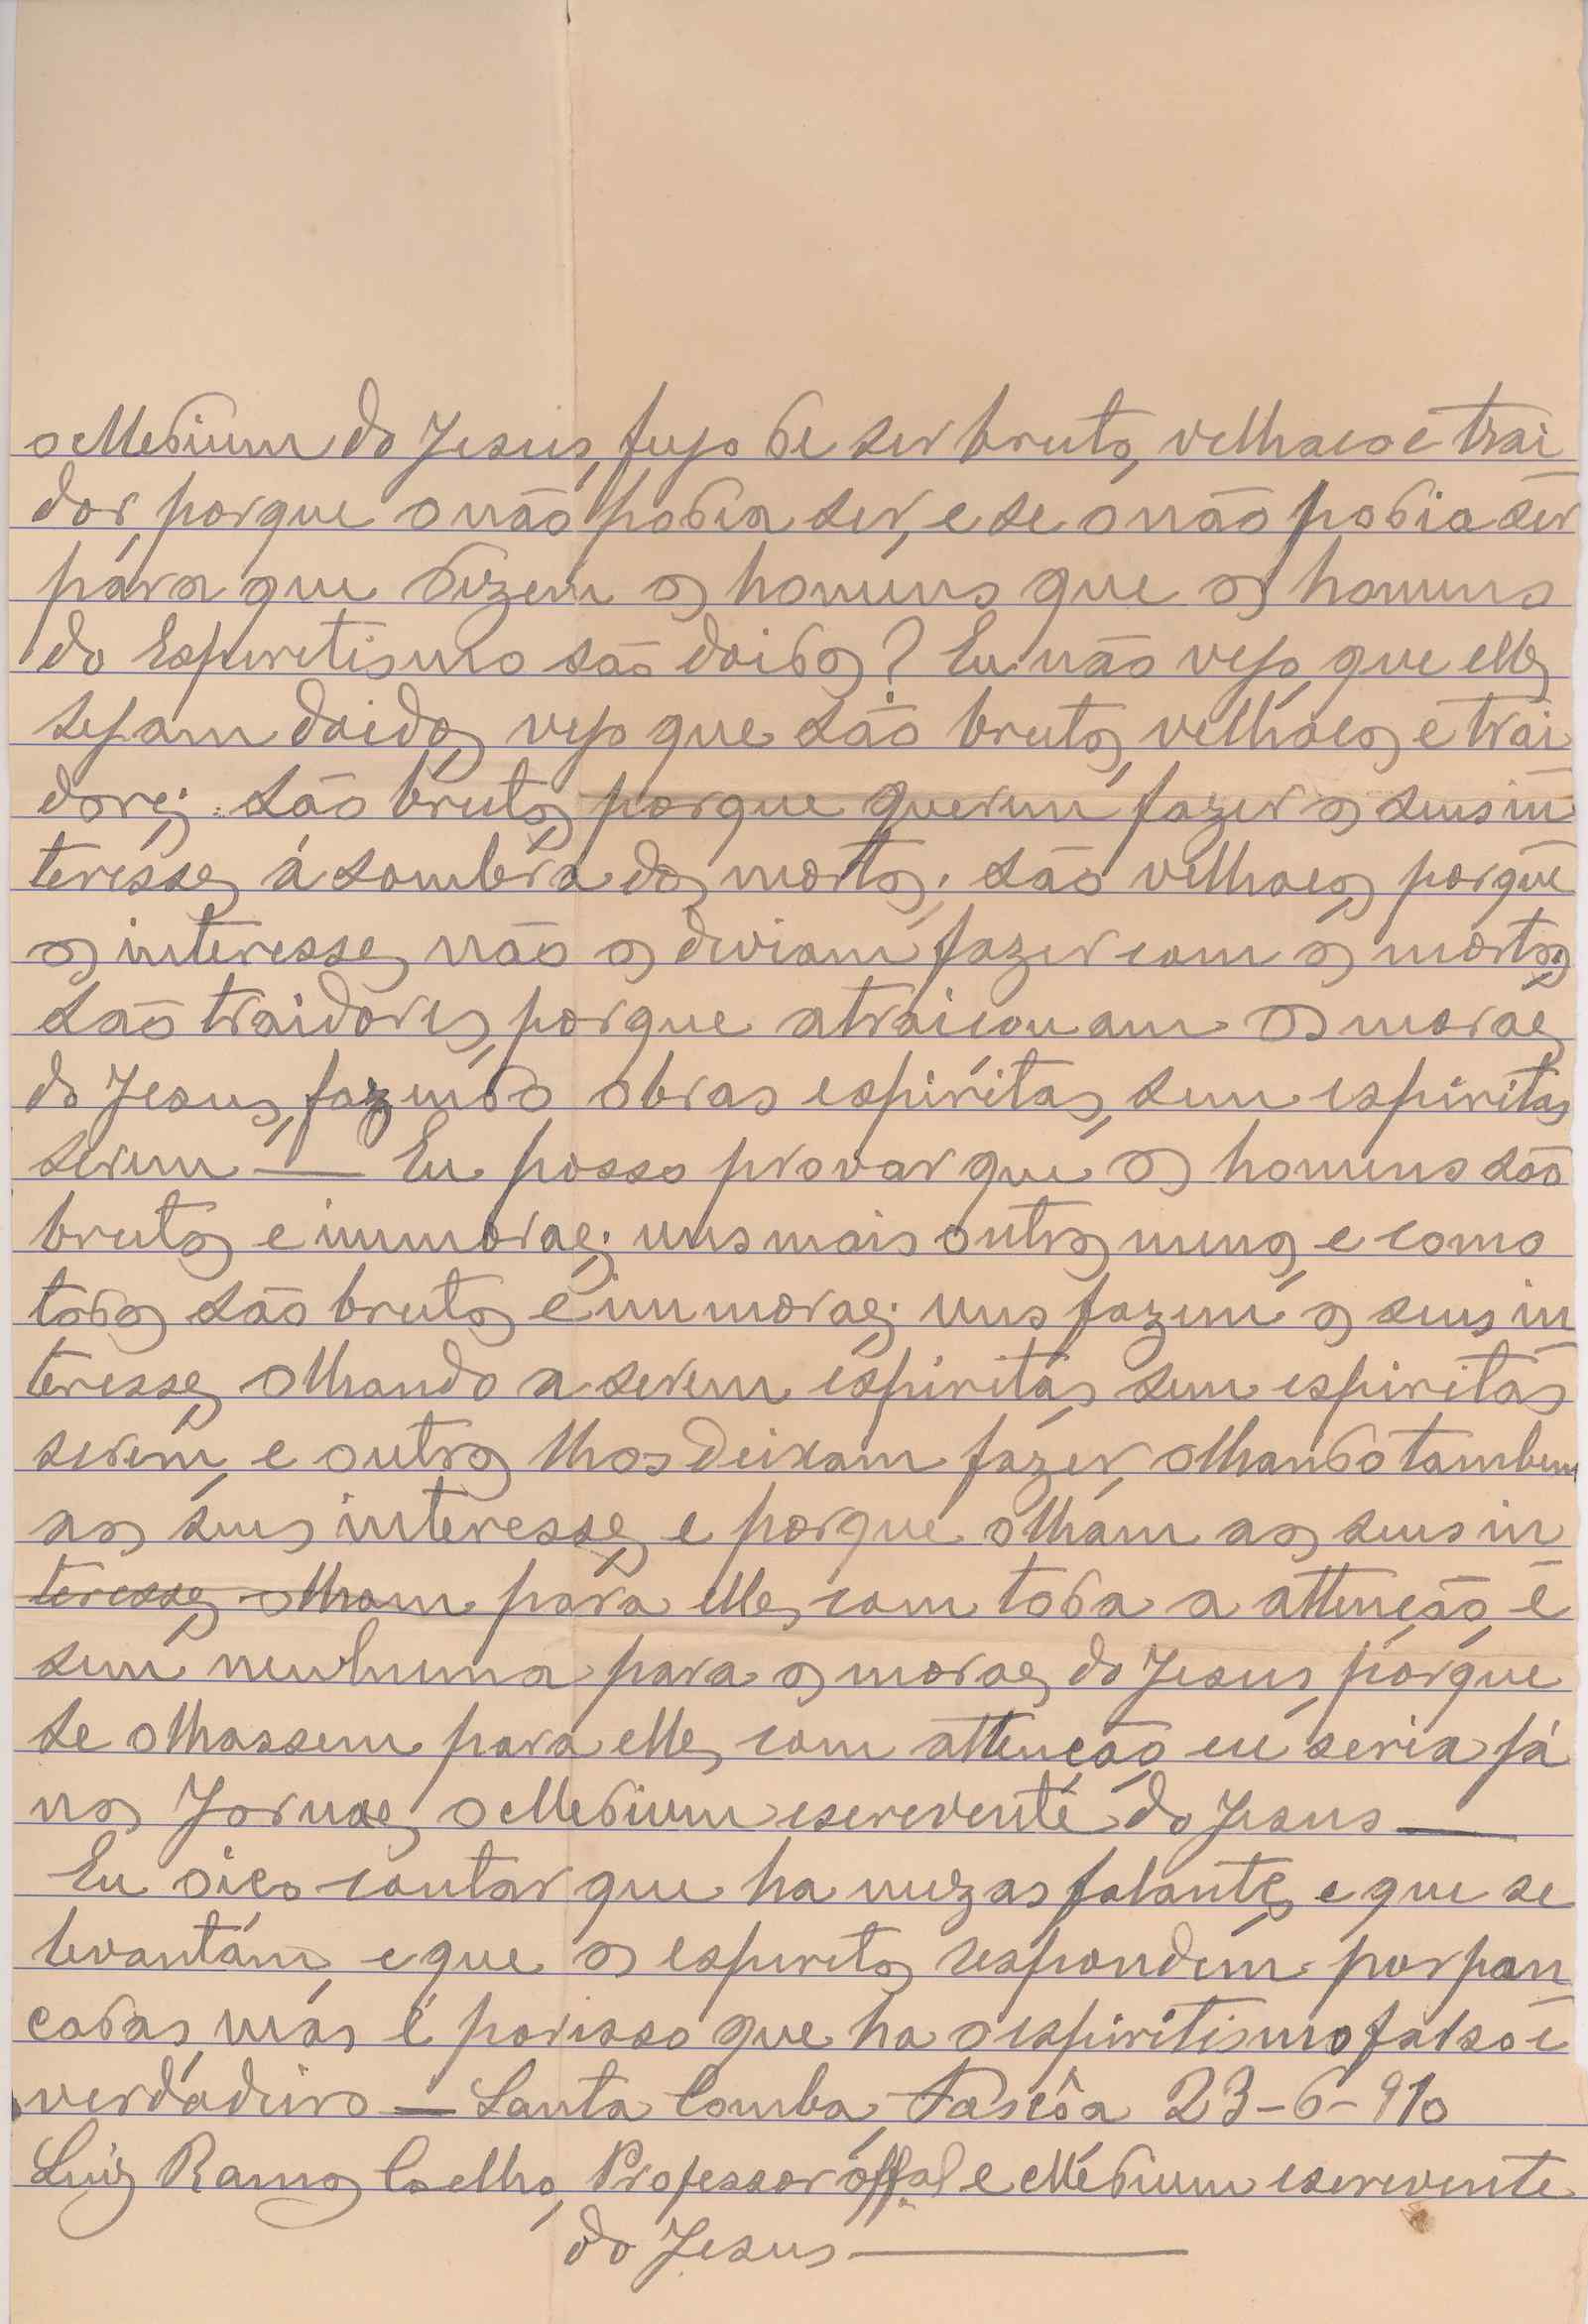 o Medium do Jesus, fujo de ser bruto, velhaco e trai
dor, porque o não podia ser, e se o não podia ser
para que dizem os homens que os homens
do Esperetismo são doidos? Eu não vejo que elles
sejam doidos, vejo que são brutos, velhacos e trai
dores; são brutos, porque querem fazer os seus in
teresses á sombra dos mortos; são velhacos, porque
os interesses não os deviam fazer com os mortos;
são traidores, porque atraiçouam os moraes
do Jesus, fazendo obras espíritas, sem espiritas
serem — Eu posso provar que os homens são
brutos e immoraes; uns mais outros menos, e como
todos são brutos e immoraes; uns fazem os seus in
teresses, olhando a serem espiritas, sem espiritas
serem, e outros lhos deixam fazer, olhando tambem
aos seus interesses, e porque olham aos seus in
teresses olham para elles com toda a attenção, e
sem nenhuma para os moraes do Jesus, porque
se olhassem para elles com attenção, eu seria já
nos Jornaes, o Medium escrevente do Jesus —
Eu oiço contar que ha mezas falantes, e que se
levantam, e que os esperitos respondem por pan
cadas, mas é porisso que ha o espiritismo falso e
verdadeiro — Santa Comba, Fascôa 23-6-910
Luiz Ramos Coelho, Professor offal e Médium escrevente
do Jesus —